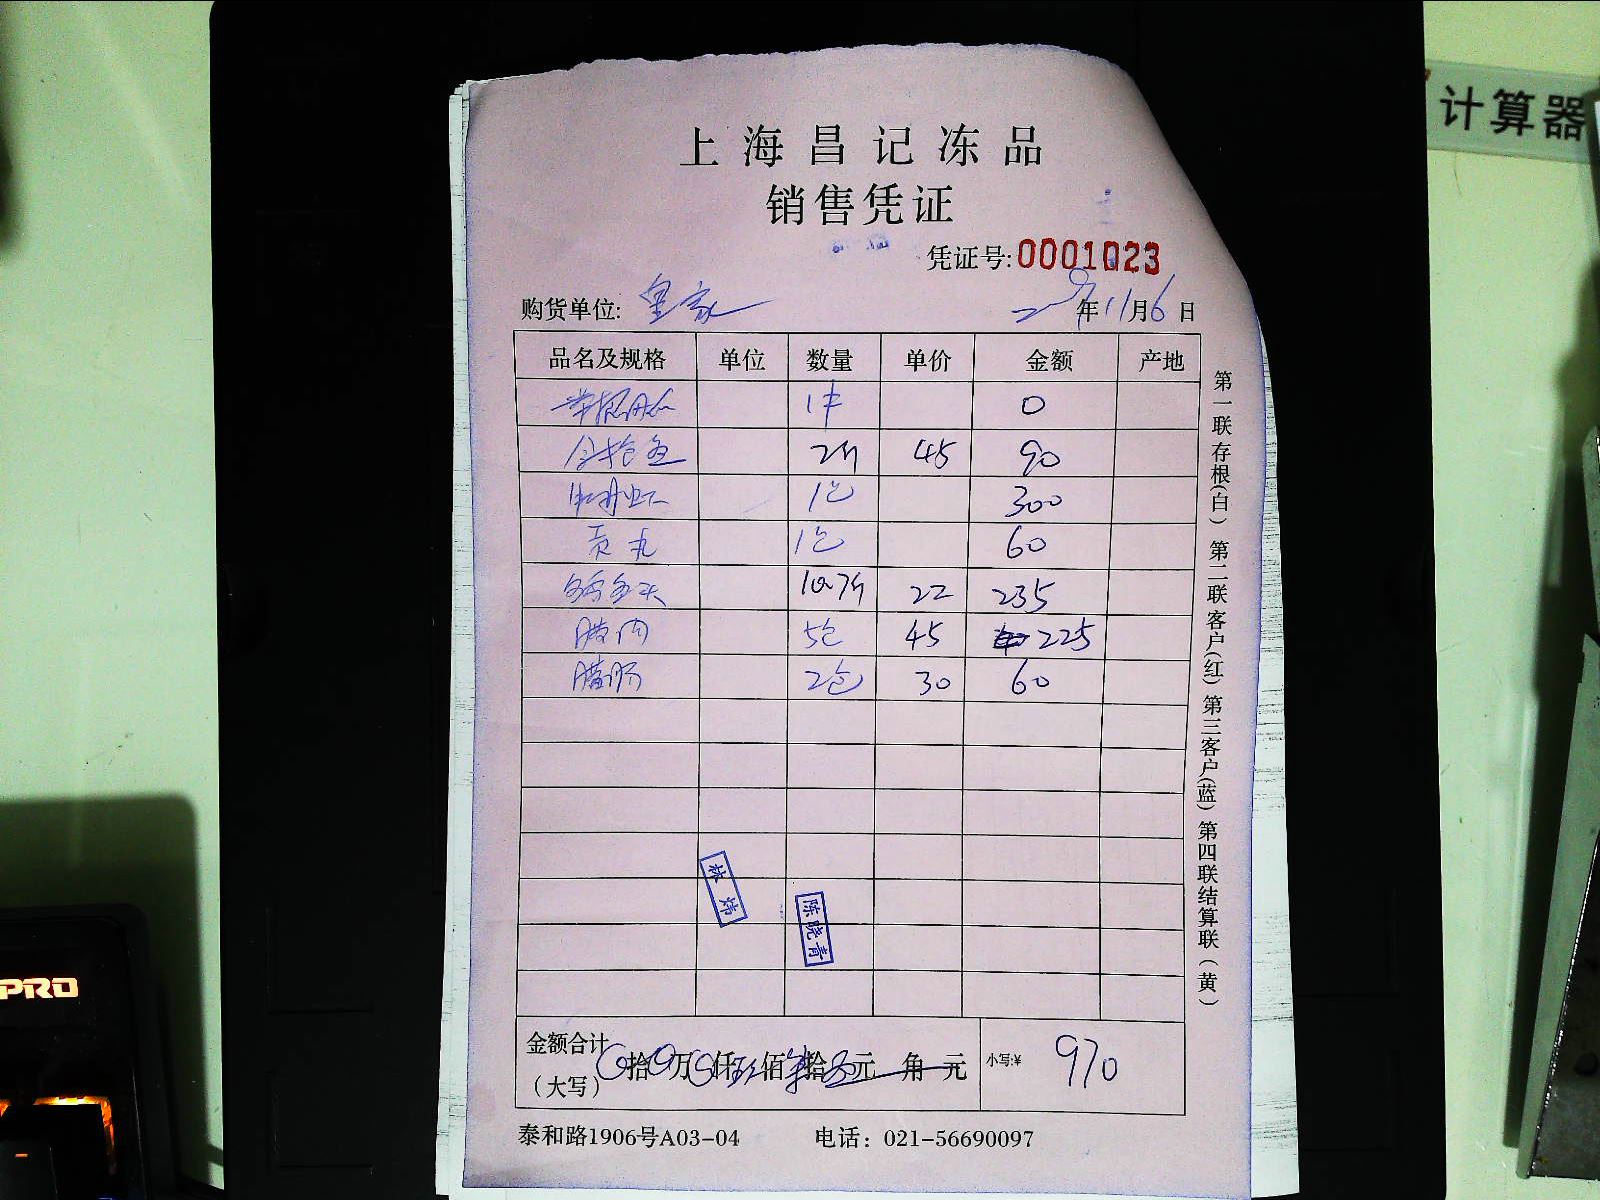 计算器
上海昌记冻品
销售凭证
凭证号:0001023
购货单位: 皇家 年11月6日
品名及规格 单位 数量 单价 金额 产地
1件 0
金枪鱼 2斤 45 90
1包 300
贡丸 1包 60
22 235
腊肉 5包 45 225
腊肠 2包 30 60
林炜
陈晓青
金额合计
(大写) 拾 万 仟 佰 拾 元 角 元 小写:¥ 970
泰和路1906号A03-04 电话: 021-56690097
第一联存根(白) 第二联客户(红) 第三客户(蓝) 第四联结算联(黄)
PRO